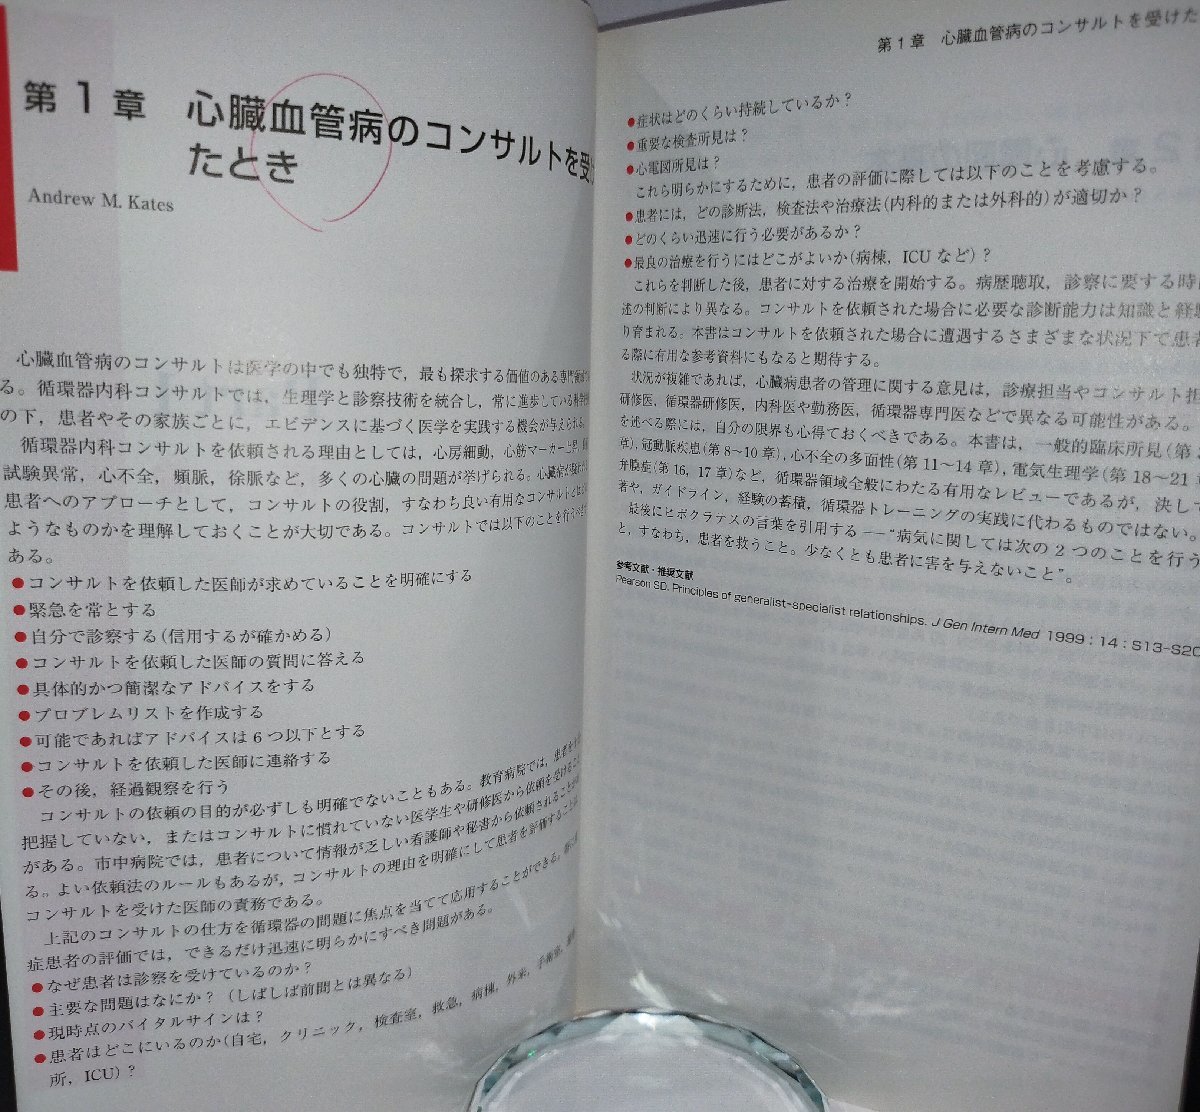 第1章 心臓血管病のコンサルトを受け
たとき
Andrew M. Kates
心臓血管病のコンサルトは医学の中でも独特で，最も探求する価値のある専門
る。循環器内科コンサルトでは，生理学と診察技術を統合し，常に進歩している
の下，患者やその家族ごとに，エビデンスに基づく医学を実践する機会が与えられる。
循環器内科コンサルトを依頼される理由としては，心房細動，心筋マーカー上昇，
試験異常，心不全，頻脈，徐脈など，多くの心臓の問題が挙げられる。心臓症
患者へのアプローチとして，コンサルトの役割，すなわち良い有用なコンサルトとは
ようなものかを理解しておくことが大切である。コンサルトでは以下のことを行う
ある。
●コンサルトを依頼した医師が求めていることを明確にする
●緊急を常とする
●自分で診察する(信用するが確かめる)
●コンサルトを依頼した医師の質問に答える
●具体的かつ簡潔なアドバイスをする
●プロブレムリストを作成する
●可能であればアドバイスは6つ以下とする
●コンサルトを依頼した医師に連絡する
●その後，経過観察を行う
コンサルトの依頼の目的が必ずしも明確でないこともある。教育病院では，患者を
把握していない，またはコンサルトに慣れていない医学生や研修医から依頼を受けること
がある。市中病院では，患者について情報が乏しい看護師や秘書から依頼されることが
る。よい依頼法のルールもあるが，コンサルトの理由を明確にして患者を評価することは，
コンサルトを受けた医師の責務である。
上記のコンサルトの仕方を循環器の問題に焦点を当てて応用することができる。
症患者の評価では，できるだけ迅速に明らかにすべき問題がある。
●なぜ患者は診察を受けているのか？
●主要な問題はなにか？(しばしば前問とは異なる)
●現時点のバイタルサインは？
●患者はどこにいるのか(自宅，クリニック，検査室，救急，病棟，外来，手術室，
所，ICU)？
第1章 心臓血管病のコンサルトを受けた
●症状はどのくらい持続しているか？
●重要な検査所見は？
●心電図所見は？
これら明らかにするために，患者の評価に際しては以下のことを考慮する。
●患者には，どの診断法，検査法や治療法(内科的または外科的)が適切か？
●どのくらい迅速に行う必要があるか？
●最良の治療を行うにはどこがよいか(病棟，ICUなど)？
これらを判断した後，患者に対する治療を開始する。病歴聴取，診察に要する時
述の判断により異なる。コンサルトを依頼された場合に必要な診断能力は知識と経験
り育まれる。本書はコンサルトを依頼された場合に遭遇するさまざまな状況下で患者
る際に有用な参考資料にもなると期待する。
状況が複雑であれば，心臓病患者の管理に関する意見は，診療担当やコンサルト担
研修医，循環器研修医，内科医や勤務医，循環器専門医などで異なる可能性がある。
を述べる際には，自分の限界も心得ておくべきである。本書は，一般的臨床所見(第
章)，冠動脈疾患(第8〜10章)，心不全の多面性(第11〜14章)，電気生理学(第18〜21
弁膜症(第16，17章)など，循環器領域全般にわたる有用なレビューであるが，決して
著や，ガイドライン，経験の蓄積，循環器トレーニングの実践に代わるものではない。
最後にヒポクラテスの言葉を引用する――“病気に関しては次の2つのことを行う
と，すなわち，患者を救うこと。少なくとも患者に害を与えないこと”。
参考文献・推奨文献
Pearson SD. Principles of generalist-specialist relationships. J Gen Intern Med 1999：14：S13-S20